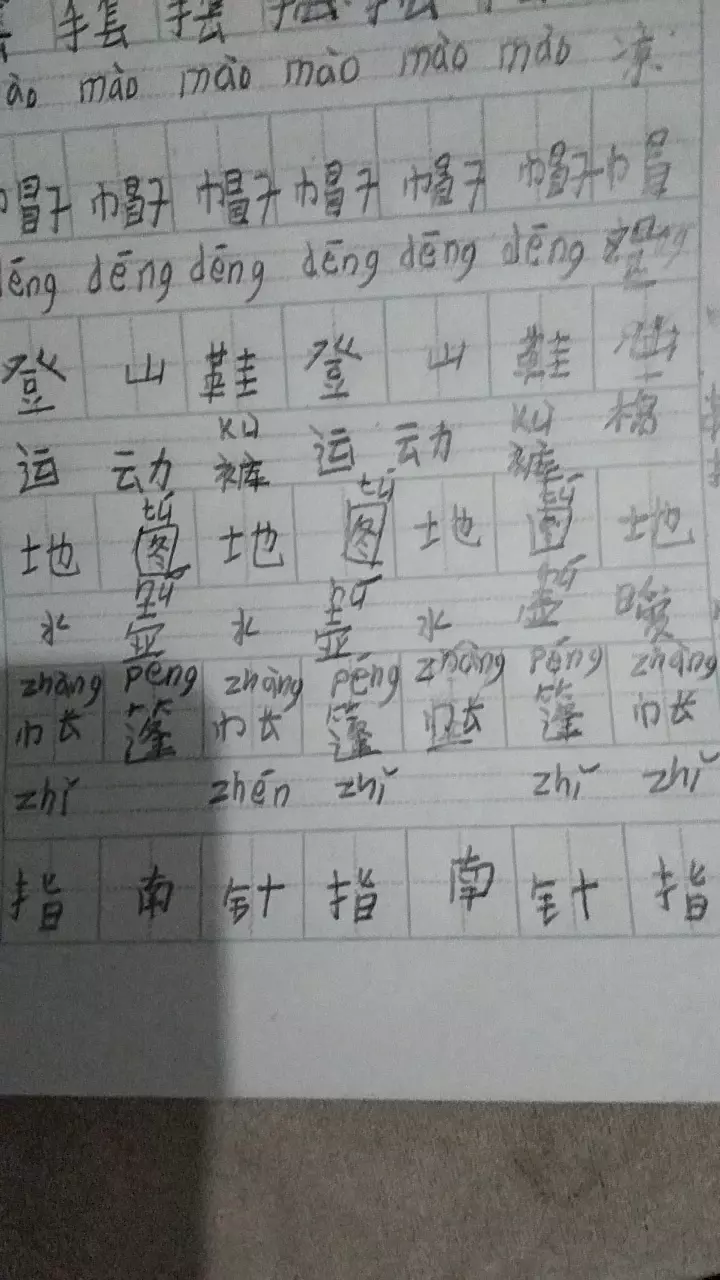 手套 手套
mào mào mào mào mào 凉
帽子 帽子 帽子 帽子 帽子 帽子 帽
dēng dēng dēng dēng dēng dēng
登 山 鞋 登 山 鞋
kù kù
运 动 裤 运 动 裤 棉
tú tú tú
地 图 地 图 地 图 地
hú hú hú
水 壶 水 壶 水 壶 暖
zhàng péng zhàng péng zhàng péng zhàng
帐 篷 帐 篷 帐 篷 帐
zhǐ zhēn zhǐ zhǐ zhǐ
指 南 针 指 南 针 指